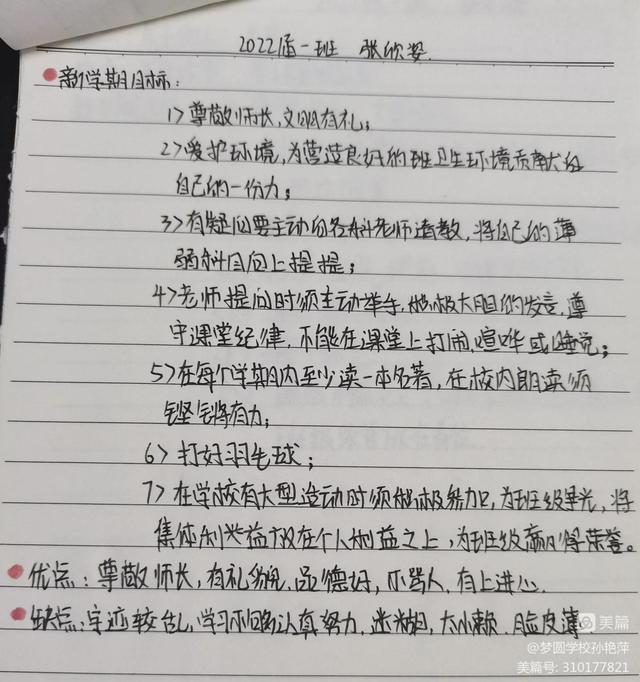 2022届一班 张欣姿
新学期目标:
1>尊敬师长,文明有礼;
2>爱护环境,为营造良好的班卫生环境贡献出
自己的一份力;
3>有疑问要主动向各科老师请教,将自己的薄
弱科目向上提提;
4>老师提问时须主动举手,积极大胆的发言,遵
守课堂纪律,不能在课堂上打闹、喧哗或睡觉;
5>在每个学期内至少读一本名著,在校内朗读须
铿锵有力;
6>打好羽毛球;
7>在学校有大型运动时须积极参加,为班级争光,将
集体利益放在个人利益之上,为班级赢得荣誉。
优点:尊敬师长,有礼貌,品德好,不骂人,有上进心.
缺点:字迹较乱,学习不够认真努力,迷糊,大小懒,脸皮薄
美篇
@梦圆学校孙艳萍
美篇号: 310177821